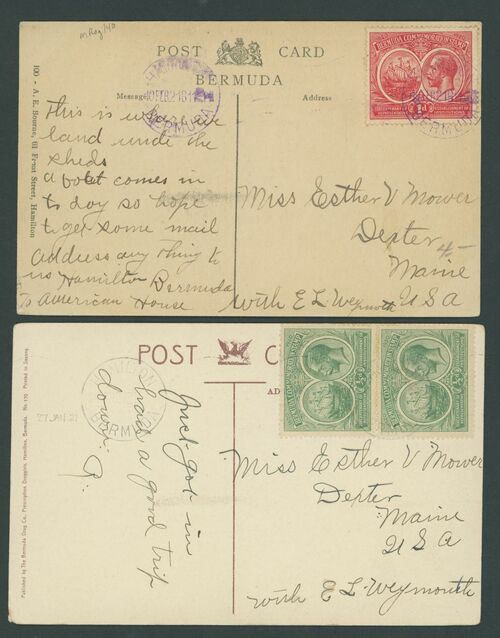 POST CARD
BERMUDA
Message
Address
100 - A. E. Bourne, 61 Front Street, Hamilton
BERMUDA COMMEMORATION STAMP
1d
HAMILTON
BERMUDA
This is where we
land unde the
sheds
a boat comes in
to day so hope
to get some mail
address any thing to
us Hamilton Bermuda
To American House
Miss Esther V Mower
Dexter
Maine
U S A
with E L Weymouth
POST C
AD
Published by The Bermuda Drug Co., Prescription Druggists, Hamilton, Bermuda. No. 170 Printed in Saxony.
HAMILTON
BERMUDA
27 JAN 21
Just got in
had a good trip
down.
P.
Miss Esther V Mower
Dexter
Maine
U S A
with E L Weymouth